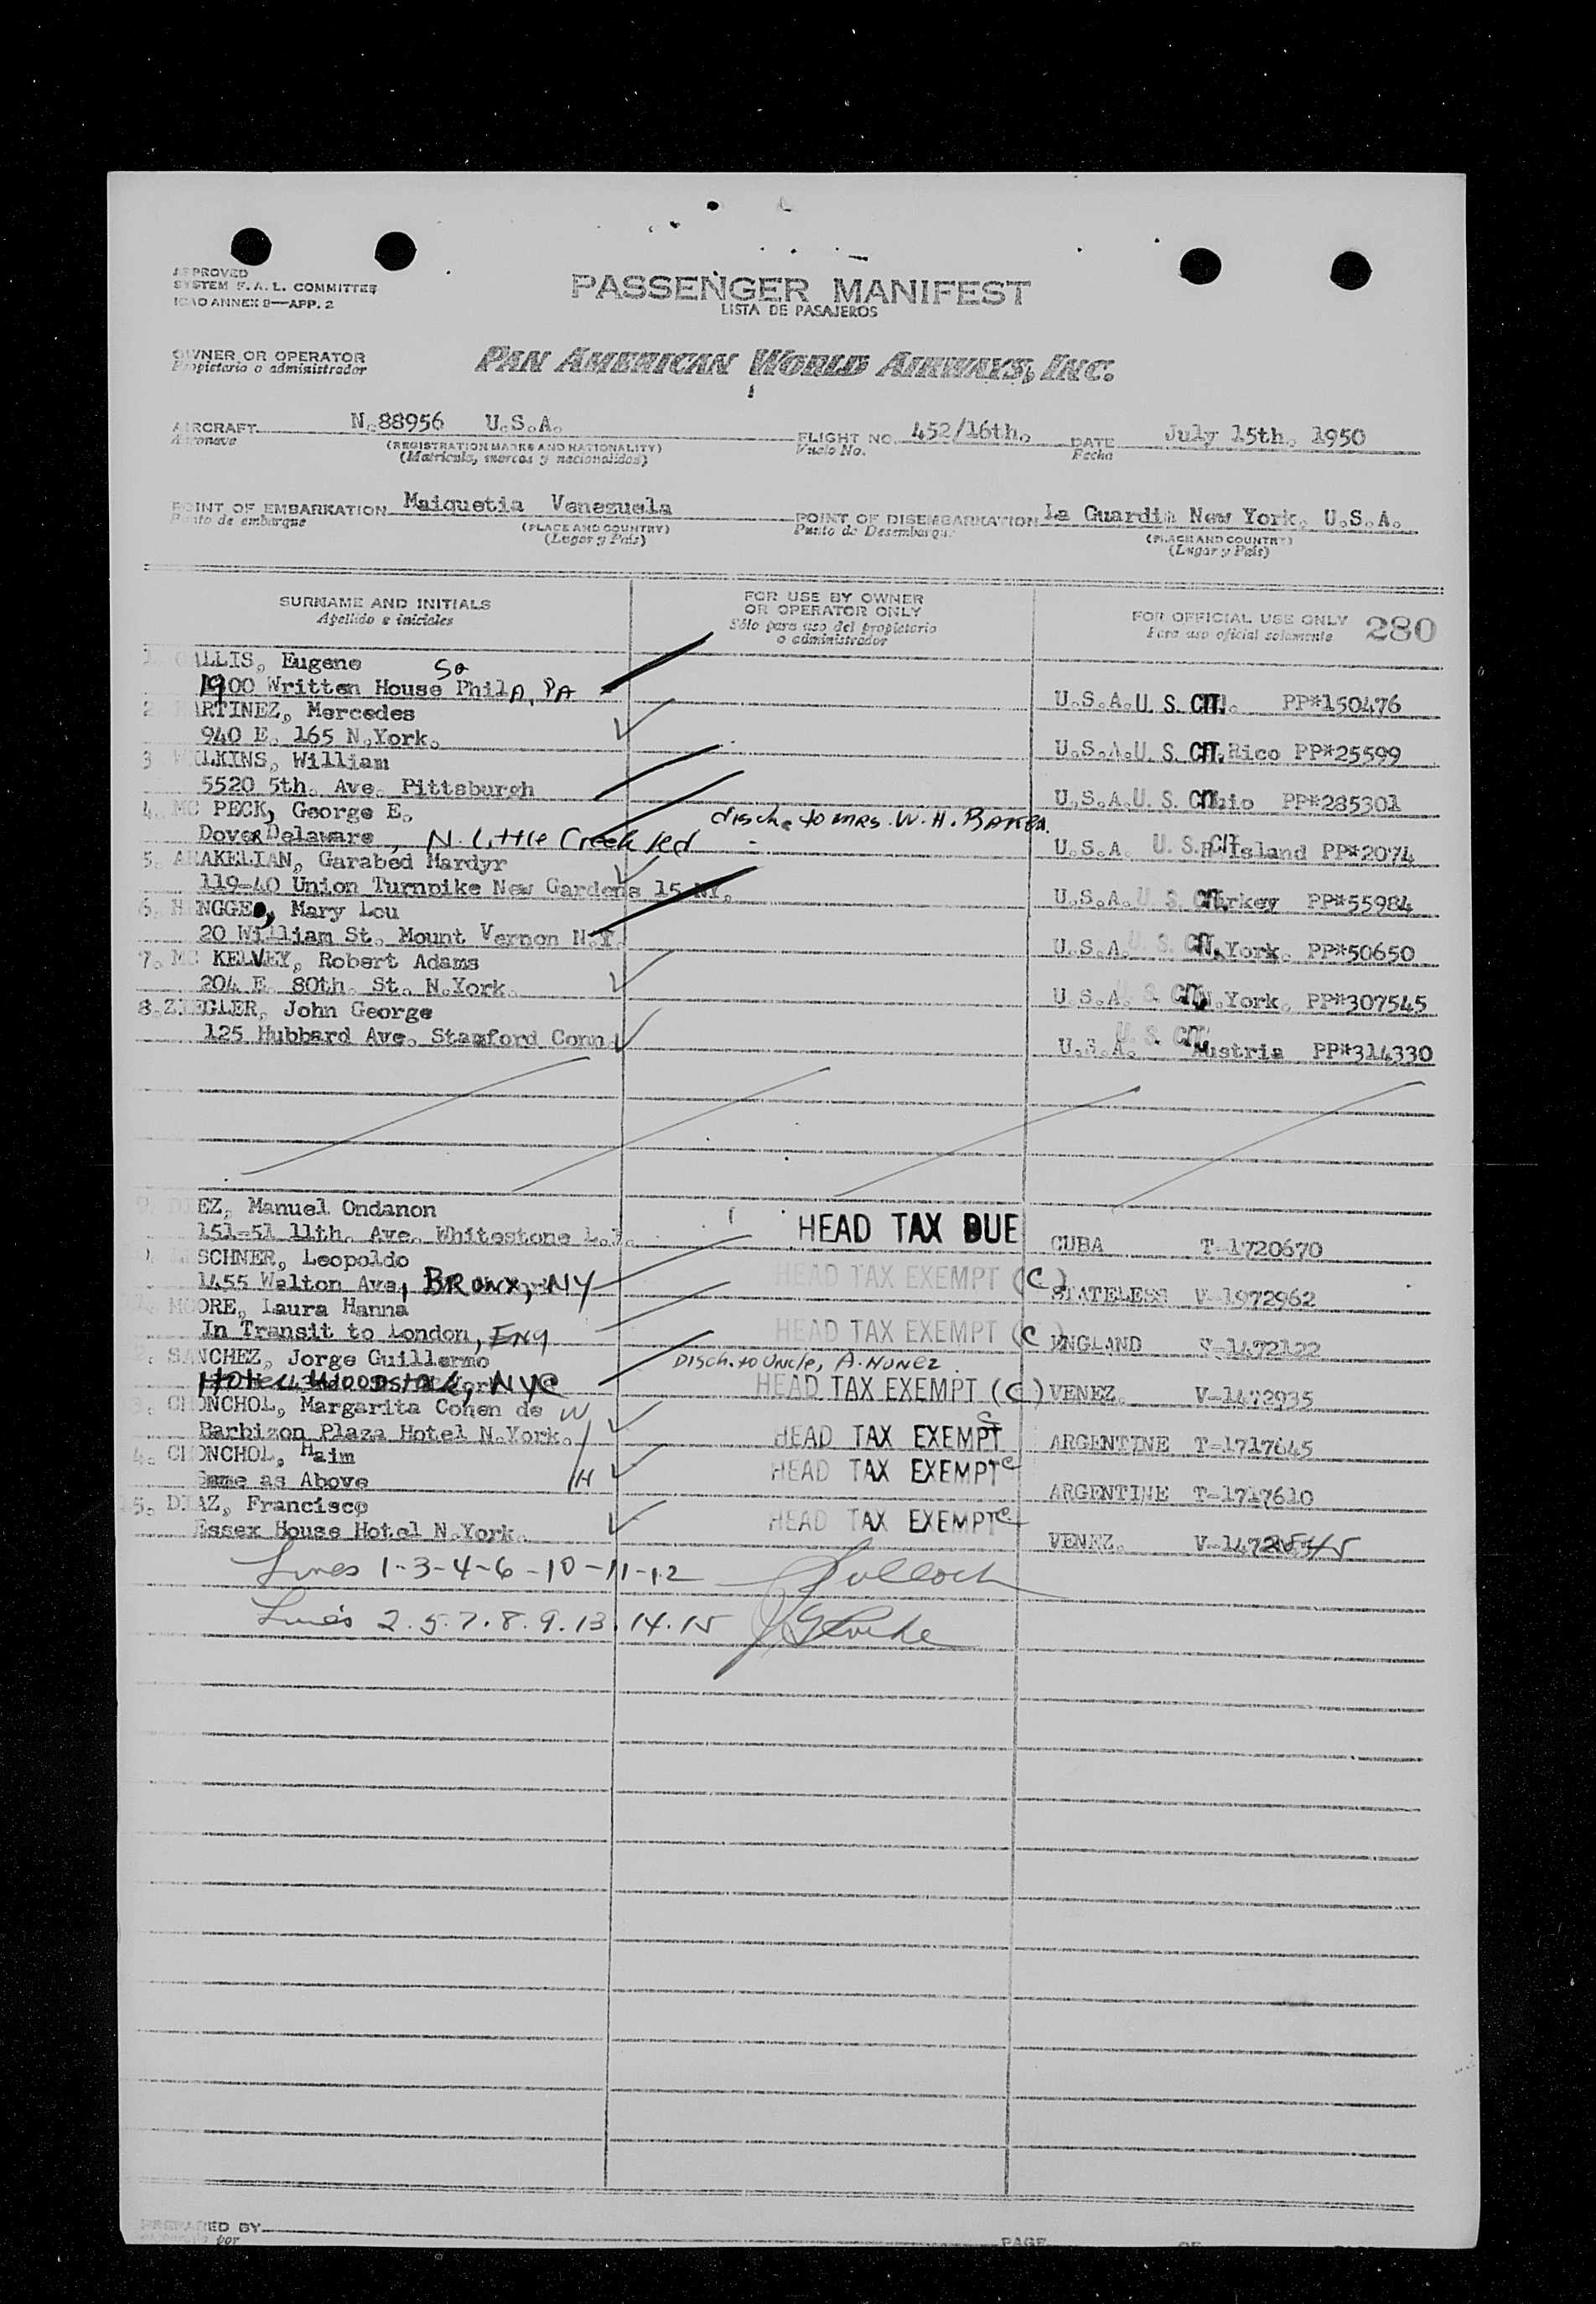 APPROVED
SYSTEM F. A. L. COMMITTEE
ICAO ANNEX 9—APP. 2
PASSENGER MANIFEST
LISTA DE PASAJEROS
OWNER OR OPERATOR
Propietario o administrador
PAN AMERICAN WORLD AIRWAYS, INC.
AIRCRAFT N.88956 U.S.A. FLIGHT NO. 452/16th. DATE July 15th. 1950
Aeronave (REGISTRATION MARKS AND NATIONALITY) Vuelo No. Fecha
(Matrícula, marcas y nacionalidad)
POINT OF EMBARKATION Maiquetia Venezuela POINT OF DISEMBARKATION La Guardia New York. U.S.A.
Punto de embarque (PLACE AND COUNTRY) Punto de Desembarque (PLACE AND COUNTRY)
(Lugar y País) (Lugar y País)
SURNAME AND INITIALS FOR USE BY OWNER OR OPERATOR ONLY FOR OFFICIAL USE ONLY 280
Apellido e iniciales Sólo para uso del propietario o administrador Para uso oficial solamente
ALLIS, Eugene
1900 Written House Sq Phila, PA U.S.A. U. S. CIT. PP*150476
2 ARTINEZ, Mercedes
940 E. 165 N.York. U.S.A. U. S. CIT. Rico PP*25599
3 LKINS, William
5520 5th. Ave. Pittsburgh U.S.A. U. S. CIT. PP*285301
4. MC PECK, George E. disch. to MRS. W. H. BAKER.
Dover Delaware, N. Little Creek rd U.S.A. U. S. CIT. Island PP*2074
5. ARAKELIAN, Garabed Mardyr
119-40 Union Turnpike New Gardens 15 NY. U.S.A. U. S. CIT. PP*55984
6. NGGE, Mary Lou
20 William St. Mount Vernon N.Y. U.S.A. U. S. CIT. York. PP*50650
7. MC KELVEY, Robert Adams
204 E. 80th. St. N.York. U.S.A. U. S. CIT. N.York. PP*307545
8. ZIEGLER, John George
125 Hubbard Ave. Stamford Conn. U.S.A. U. S. CIT. Austria PP*314330
EZ, Manuel Ondanon
151-51 11th. Ave. Whitestone L.I. HEAD TAX DUE CUBA T-1720670
SCHNER, Leopoldo
1455 Walton Ave, BRONX, NY HEAD TAX EXEMPT (C) STATELESS V-1972962
MOORE, Laura Hanna
In Transit to London, ENG HEAD TAX EXEMPT (C ENGLAND -1472122
2. SANCHEZ, Jorge Guillermo Disch. to Uncle, A. NUNEZ
Hotel WOODSTOCK, NYC HEAD TAX EXEMPT (C) VENEZ. V-1472935
3. CHONCHOL, Margarita Cohen de W
Barbizon Plaza Hotel N.York. HEAD TAX EXEMPT C ARGENTINE T-1717645
4. CHONCHOL, Haim
Same as Above H HEAD TAX EXEMPT C ARGENTINE T-1717610
15. DIAZ, Francisco
Essex House Hotel N.York. HEAD TAX EXEMPT C VENEZ.
Lines 1-3-4-6-10-11-12
Lines 2.5.7.8.9.13.14.15
PREPARED BY
por PAGE OF